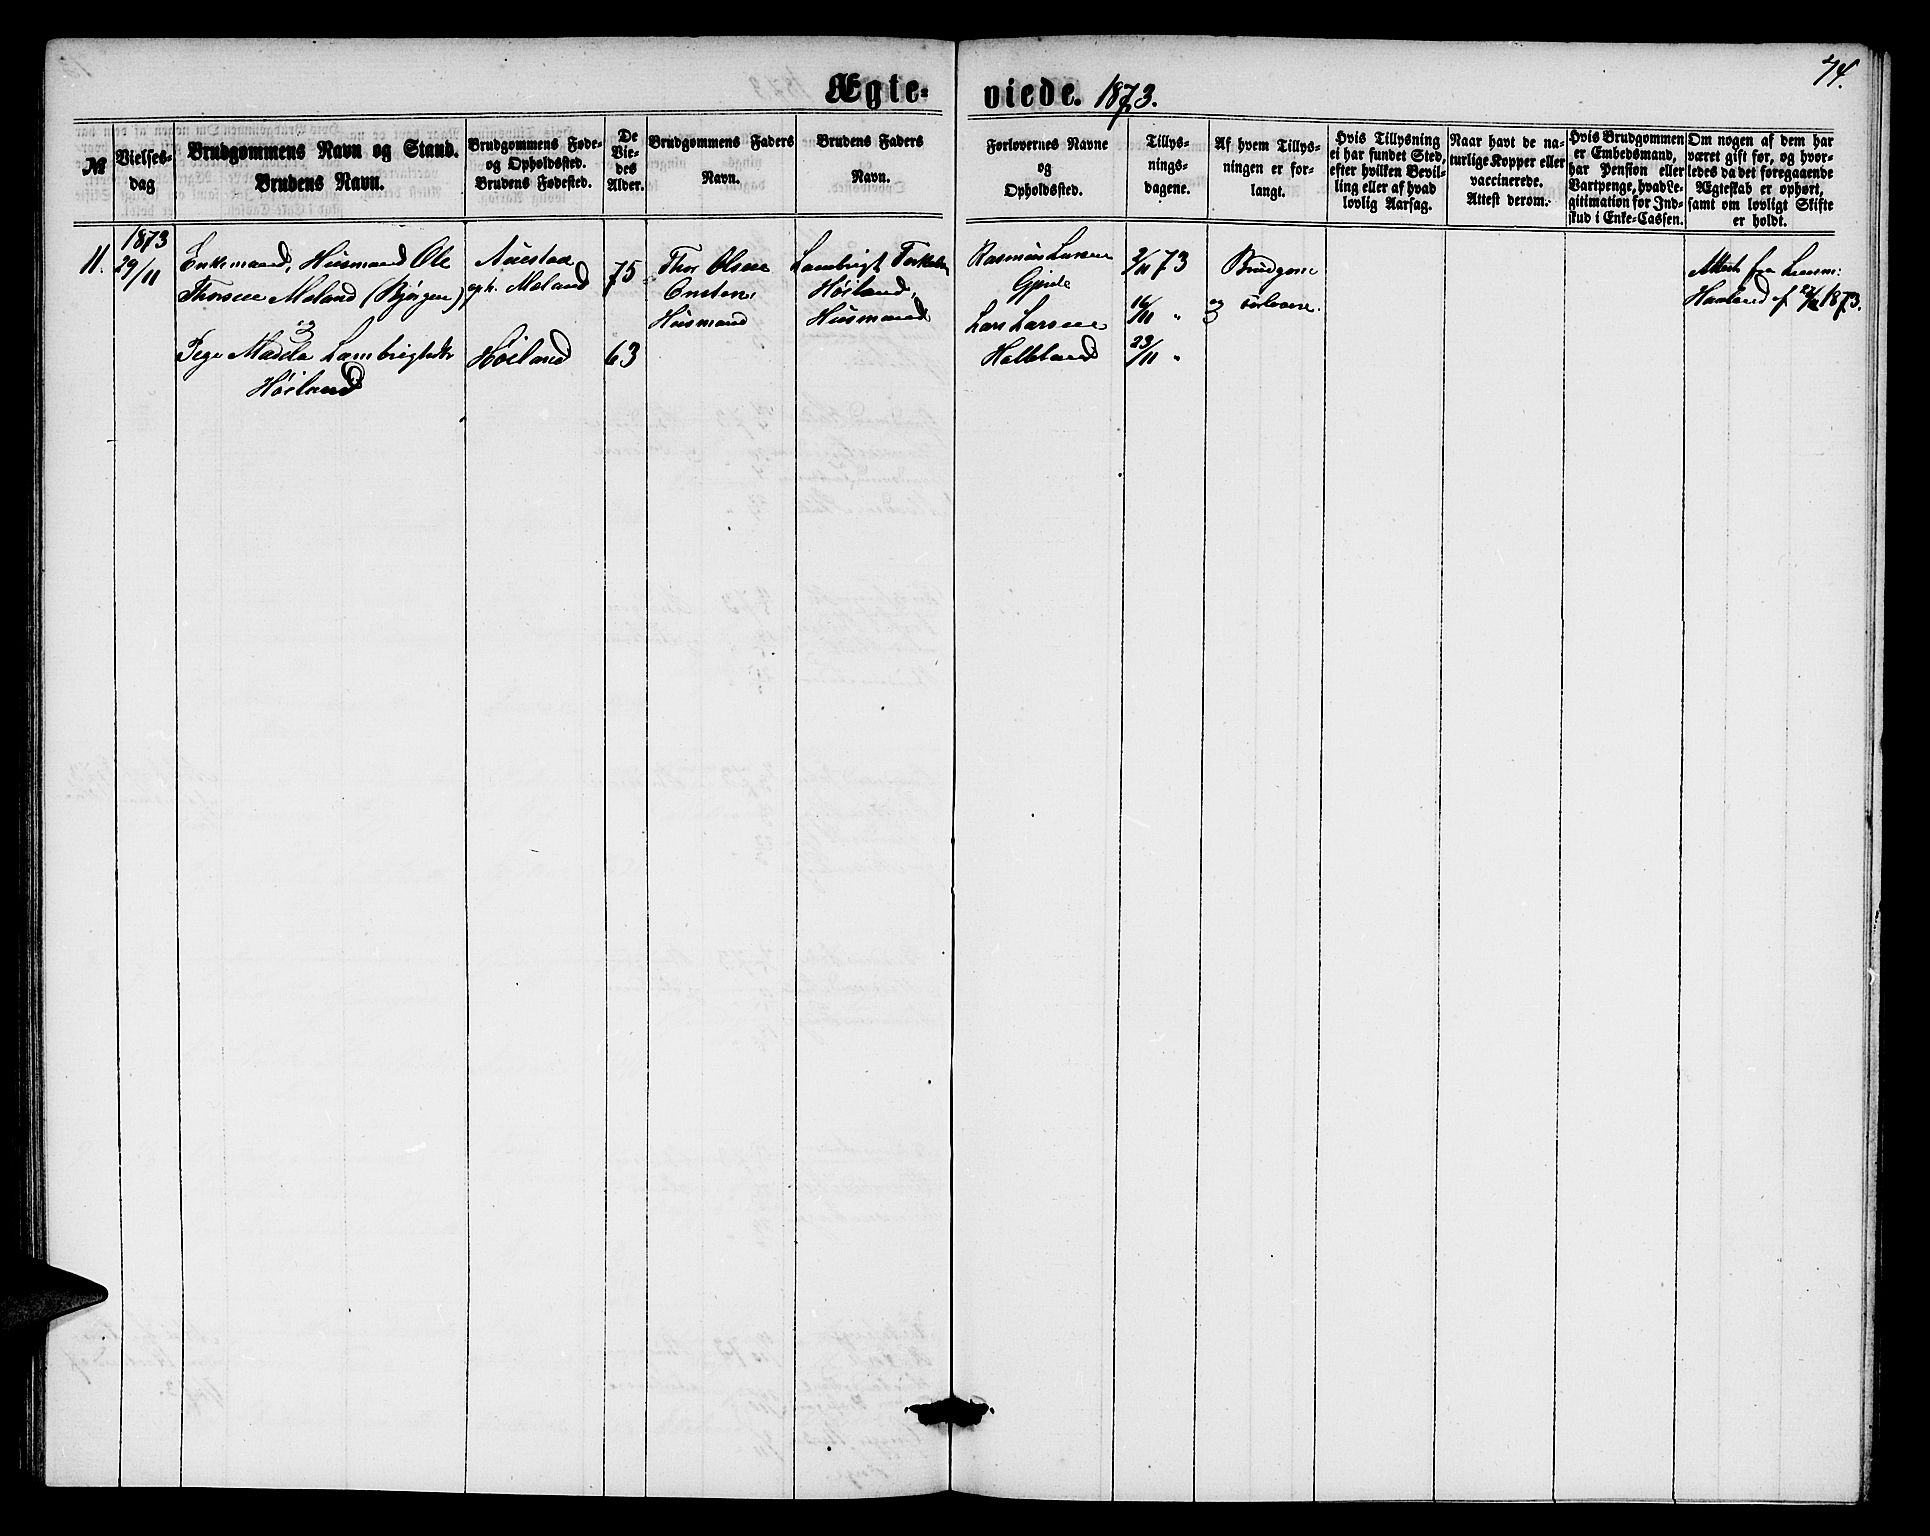 74.
Ægte-
viede. 1873.
№
Vielses-
dag
Brudgommens Navn og Stand.
Brudens Navn.
Brudgommens Føde-
og Opholdssted.
Brudens Fødested.
De
Vie-
des
Alder.
Brudgommens Faders
Navn.
Brudens Faders
Navn.
Forlovernes Navne
og
Opholdssted.
Tillys-
nings-
dagene.
Af hvem Tillys-
ningen er for-
langt.
Hvis Tillysning
ei har fundet Sted,
efter hvilken Bevil-
ling eller af hvad
lovlig Aarsag.
Naar havt de na-
turlige Kopper eller
vaccinerede.
Attest derom.
Hvis Brudgommen
er Embedsmand,
har Pension eller
Vartpenge, hvad Le-
gitimation for Ind-
skud i Enke-Cassen.
Om nogen af dem har
været gift før, og hvor-
ledes da det foregaaende
Ægteskab er ophørt,
samt om lovligt Skifte
er holdt.
11.
1873
29/11
Enkemand, Husmand Ole
Thorsen Meland (Bjørgen)
og
Pige Madela Lambrigtsdtr
Høiland
Auestad
oph. Meland
Høiland
75
63
Thor Olsen
Husmand
Lambrigt
Høiland,
Husmand
Rasmus Larsen
Gjøde
Lars Larsen
Halleland
2/11 73
16/11 "
23/11 "
Brudgom
og Forlovere.
Attest fra Lensm:
Haaland af 1873.